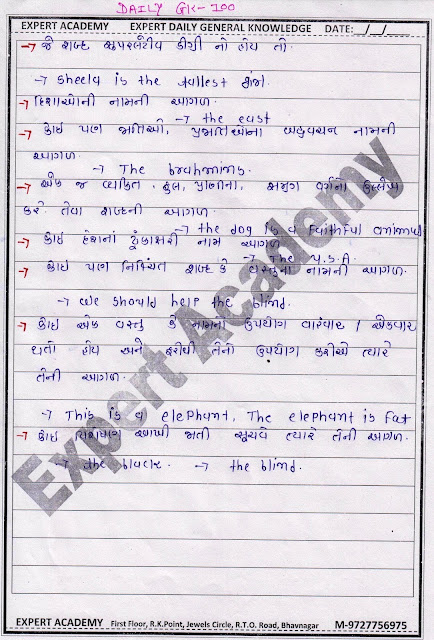 DAILY GK-100
EXPERT ACADEMY EXPERT DAILY GENERAL KNOWLEDGE DATE:__/__/__
→ જે શબ્દ સુપરલેટીવ ડીગ્રી નો હોય તો.
→ Sheela is the tallest
→ દિશાઓની નામની આગળ.
→ the east
→ કોઇ પણ જાતિઓ, પ્રજાતિઓના બહુવચન નામની
આગળ.
→ The brahmins.
→ એક જ વ્યકિત, ફુલ, પ્રાણીના, સમગ્ર વર્ગનો ઉલ્લેખ
કરે તેવા શબ્દની આગળ.
→ the dog is a faithful animal
→ કોઇ દેશનાં ટૂંકાક્ષરી નામ આગળ
→ The U.S.A.
→ કોઇ પણ નિશ્ચિત શબ્દ કે વસ્તુના નામની આગળ.
→ We should help the blind.
→ કોઇ એક વસ્તુ કે નામનો ઉપયોગ વારંવાર / એકવાર
થતો હોય અને ફરીથી તેનો ઉપયોગ કરીએ ત્યારે
તેની આગળ.
→ This is a elephant, The elephant is fat
→ કોઇ વિશેષણ આખી જાતી સૂચવે ત્યારે તેની આગળ.
→ the black. → the blind.
Expert Academy
EXPERT ACADEMY First Floor, R.K.Point, Jewels Circle, R.T.O. Road, Bhavnagar M-9727756975